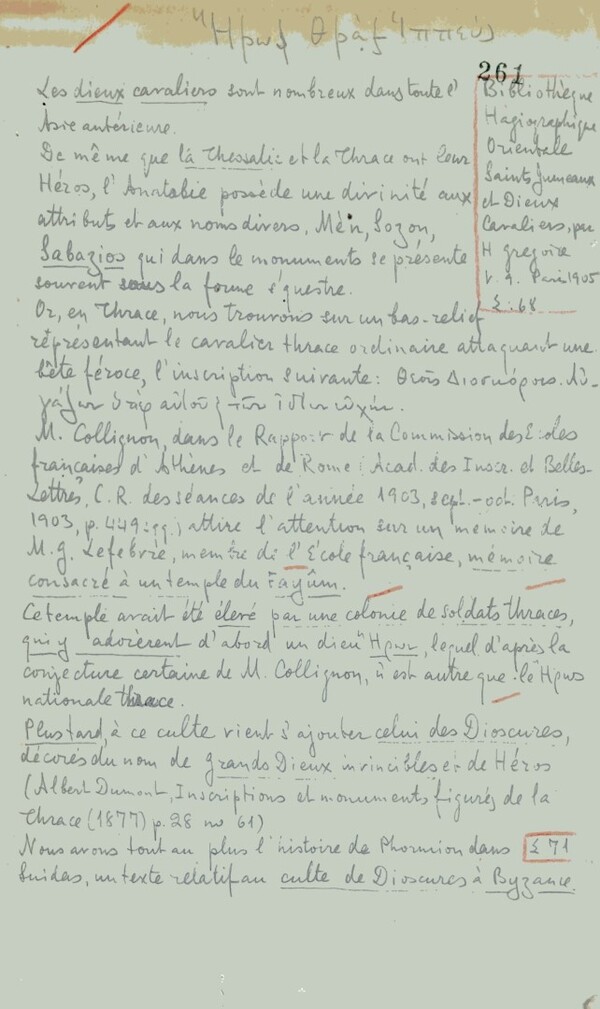 Ἥρως Θρᾷξ Ἱππεύς
261
Les dieux cavaliers sont nombreux dans toute l'
Asie antérieure.
De même que la Thessalie et la Thrace ont leur
Héros, l'Anatolie possède une divinité aux
attributs et aux noms divers, Mèn, Sozon,
Sabazios qui dans le monuments se présente
souvent sous la forme équestre.
Or, en Thrace, nous trouvons sur un bas-relief
représentant le cavalier thrace ordinaire attaquant une
bête féroce, l'inscription suivante: Θεοῖς Διοσκόροις
ὑπὲρ
M. Collignon, dans le Rapport de la Commission des Ecoles
françaises d'Athènes et de Rome (Acad. des Inscr. et Belles-
Lettres, C.R. des séances de l'année 1903, sept.-oct. Paris,
1903, p. 449 sq.) attire l'attention sur un mémoire de
M. G. Lefebvre, membre de l'École française, mémoire
consacré à un temple du Fayûm.
Ce temple avait été élevé par une colonie de soldats thraces,
qui y adorèrent d'abord un dieu Ἡρων, lequel d'après la
conjecture certaine de M. Collignon, n'est autre que le Ἥρως
nationale thrace.
Plus tard, à ce culte vient s'ajouter celui des Dioscures,
décorés du nom de grands Dieux invincibles et de Héros
(Albert Dumont, Inscriptions et monuments figurés de la
Thrace (1877) p. 28 no 61)
Nous avons tout au plus l'histoire de Phormion dans
Suidas, un texte relatif au culte de Dioscures à Byzance.
Σ 71
Bibliothèque
Hagiographique
Orientale
Saints Jumeaux
et Dieux
Cavaliers, par
H gregoire
V. 9. Paris 1905
Σ. 68